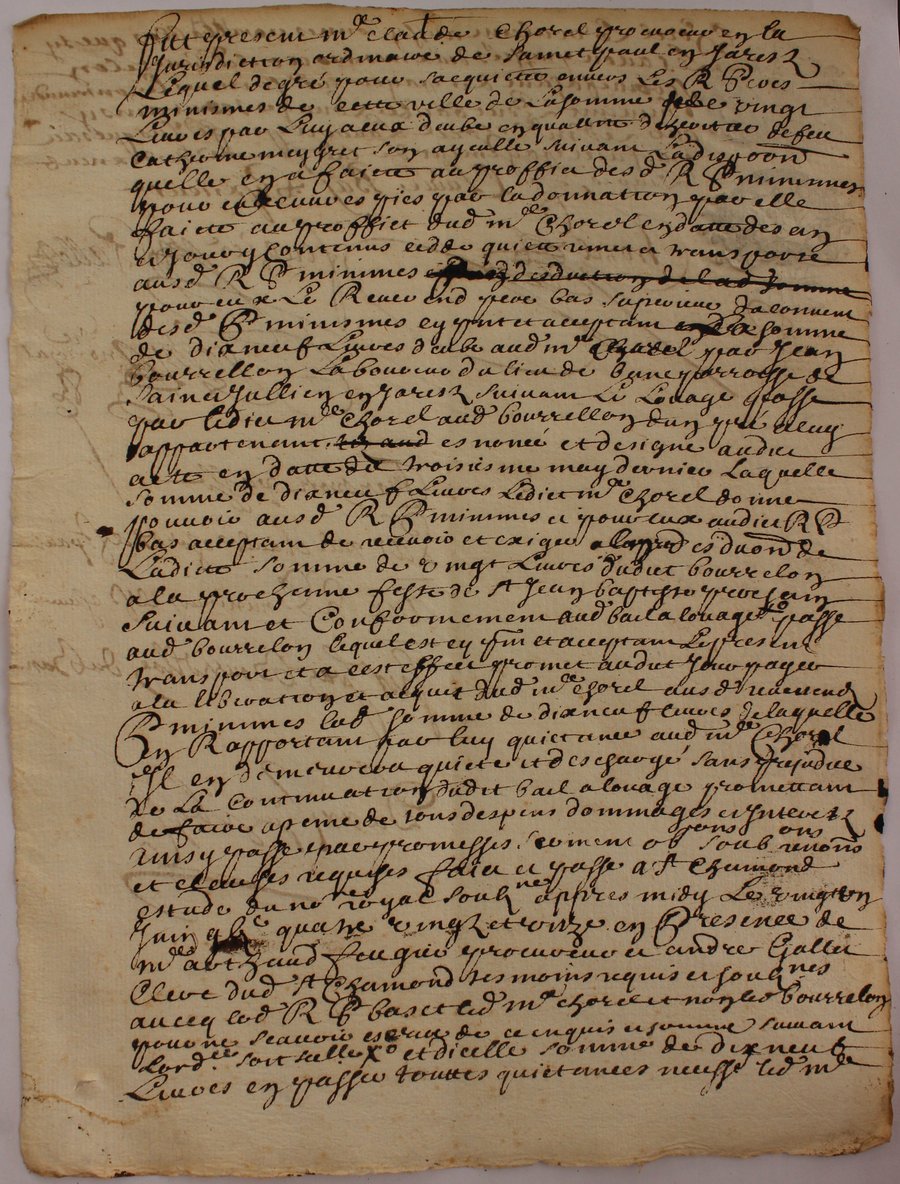 fut present m.e claude Chorel procureur en la
Jurisdiction ordinaire de Sainct paul en Jarestz
Lequel de gré pour sacquitter envers Les R P
minismes de cette ville de La somme de vingt
Livres par Luy a eux deube en quallité d'heritier de feu
Catherine meygret son ayeulle suivant La dispoon
quelle en a faicte au proffict desd R P minismes
pour euvres pies par la donnation par elle
faicte au proffict dud m.e Chorel en datte des an
et jour y contenus cedde quitte remet et transporte
ausd R P minimes
pour eux Le Reverend pere bas superieur du couvent
desd P minismes cy pnt et acceptant somme
de dix neuf Livres deube aud m.e Chorel par Jean
bourrellon Laboureur du lieu de parroisse de
Sainct Jullien en Jarestz suivant Le Louage passé
par ledict m.e Chorel aud bourrellon dun pré a luy
appartenant es noncé et designé audict
acte en datte du troisiesme may dernier Laquelle
somme de dix neuf Livres Ledict m.e Chorel donne
pouvoir ausd R P minimes et pour eux audict R P
bas acceptant de recevoir et exiger de
Ladicte somme de vingt Livres dudict bourrelon
a la prochenne feste de St Jean baptiste prochain
suivant et Conformement aud bail a louage passé
aud bourrelon lequel est cy pnt et acceptant Le present
transport et a cest effect promet audict Jour payer
a la liberation et acquit dud m.e Chorel ausd reverend
P minimes lad somme de dix neuf livres de laquelle
en Rapportant par luy quictance aud m.e Chorel
Il en demeurera quicte et deschargé sans prejudice
de La Continuation dudict bail a louage promettant
de faire a peine de tous despens dommages et Interestz
ainsy passé par promesses serment ob soub renons
et clauses requises faict et passé a St Chamond
estude du no.re royal soub.ne appres midy Le vingt un
Juin quatre vingtz et onze en Presence de
m.e arthaud procureur et andre Gallet
Clerc dud St Chamond tesmoins requis et soub.nes
avecq led R P bas et led m.e Chorel et non led bourrelon
pour ne scavoir escrire de ce enquis et sommé suivant
Lord.ce soit et dicelle somme de dix neuf
Livres en passer touttes quictances led m.e